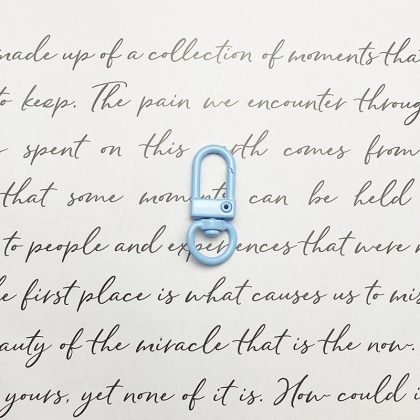 made up of a collection of moments that
to keep. The pain we encounter throug
spent on this rth comes from
that some momen can be held
to people and experiences that were n
e first place is what causes us to mis
auty of the miracle that is the now.
yours, yet none of it is. How could i